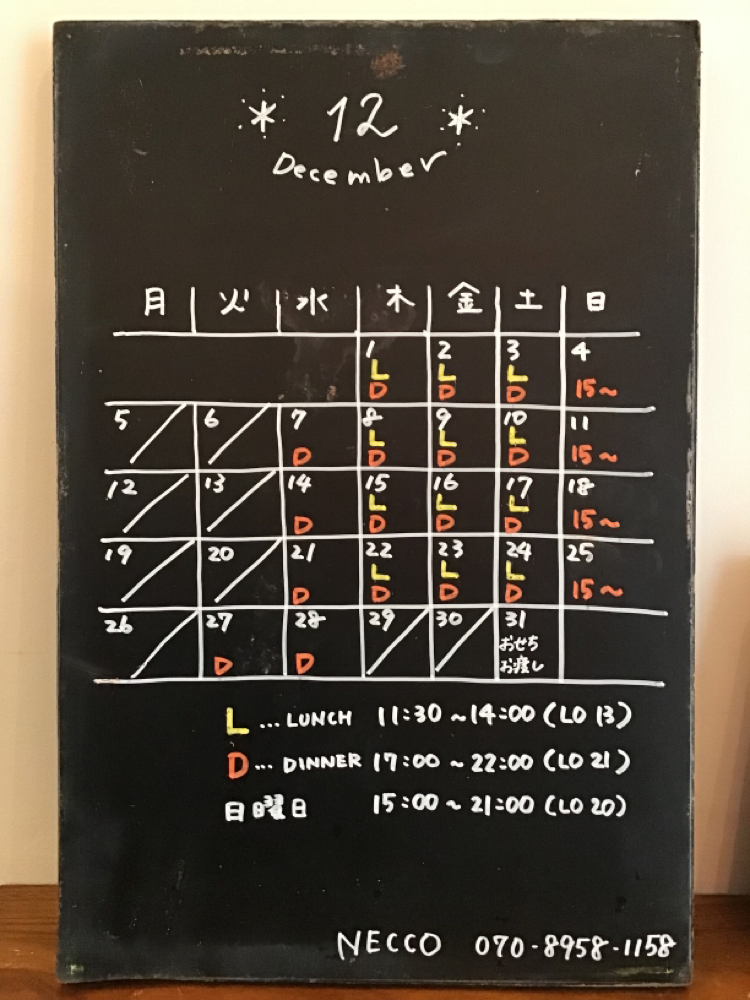 * 12 *
December
月 火 水 木 金 土 日
1 2 3 4
L L L
D D D 15~
5 6 7 8 9 10 11
L L L
D D D D 15~
12 13 14 15 16 17 18
L L L
D D D D 15~
19 20 21 22 23 24 25
L L L
D D D D 15~
26 27 28 29 30 31
おせち
D D お渡し
L ... LUNCH 11:30 ~14:00 (LO 13)
D ... DINNER 17:00 ~ 22:00 (LO 21)
日曜日 15:00 ~ 21:00 (LO 20)
NECCO 070-8958-1158